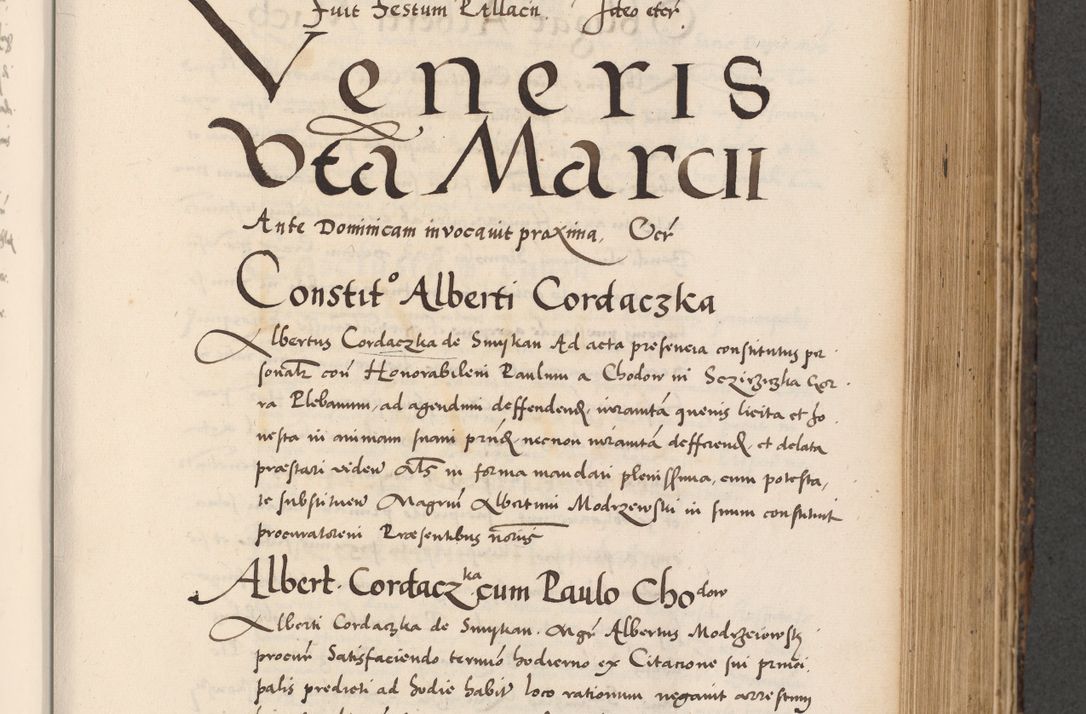 Fuit Festum
Veneris
Vta Marcii
Ante Dominicam invocavit proxima, Etcr
Constit° Alberti Cordaczka
Albertus Cordaczka de Smykan Ad acta presencia constitutus per
sonalr contra Honorabilem Paulum a Chodow in
ra Plebanum, ad agendum deffendend, iuramta quevis licita et ho
nesta in animam suam prnd necnon iuramta defferend et delata
præstari viden Als in forma mandati plenissima, cum potesta,
te substituen Magrum Albertum Modrzewski in suum constituit
procuratorem Præsentibus notariis
Albert. Cordacz ka cum Paulo Chodow
Alberti Cordaczka de Smykan. Mgr Albertus Modrzeiowsky
procur Satisfaciendo termino hodierno ex Citacione sui princi,
palis predicti ad hodie habit loco rationum negavit arrestum